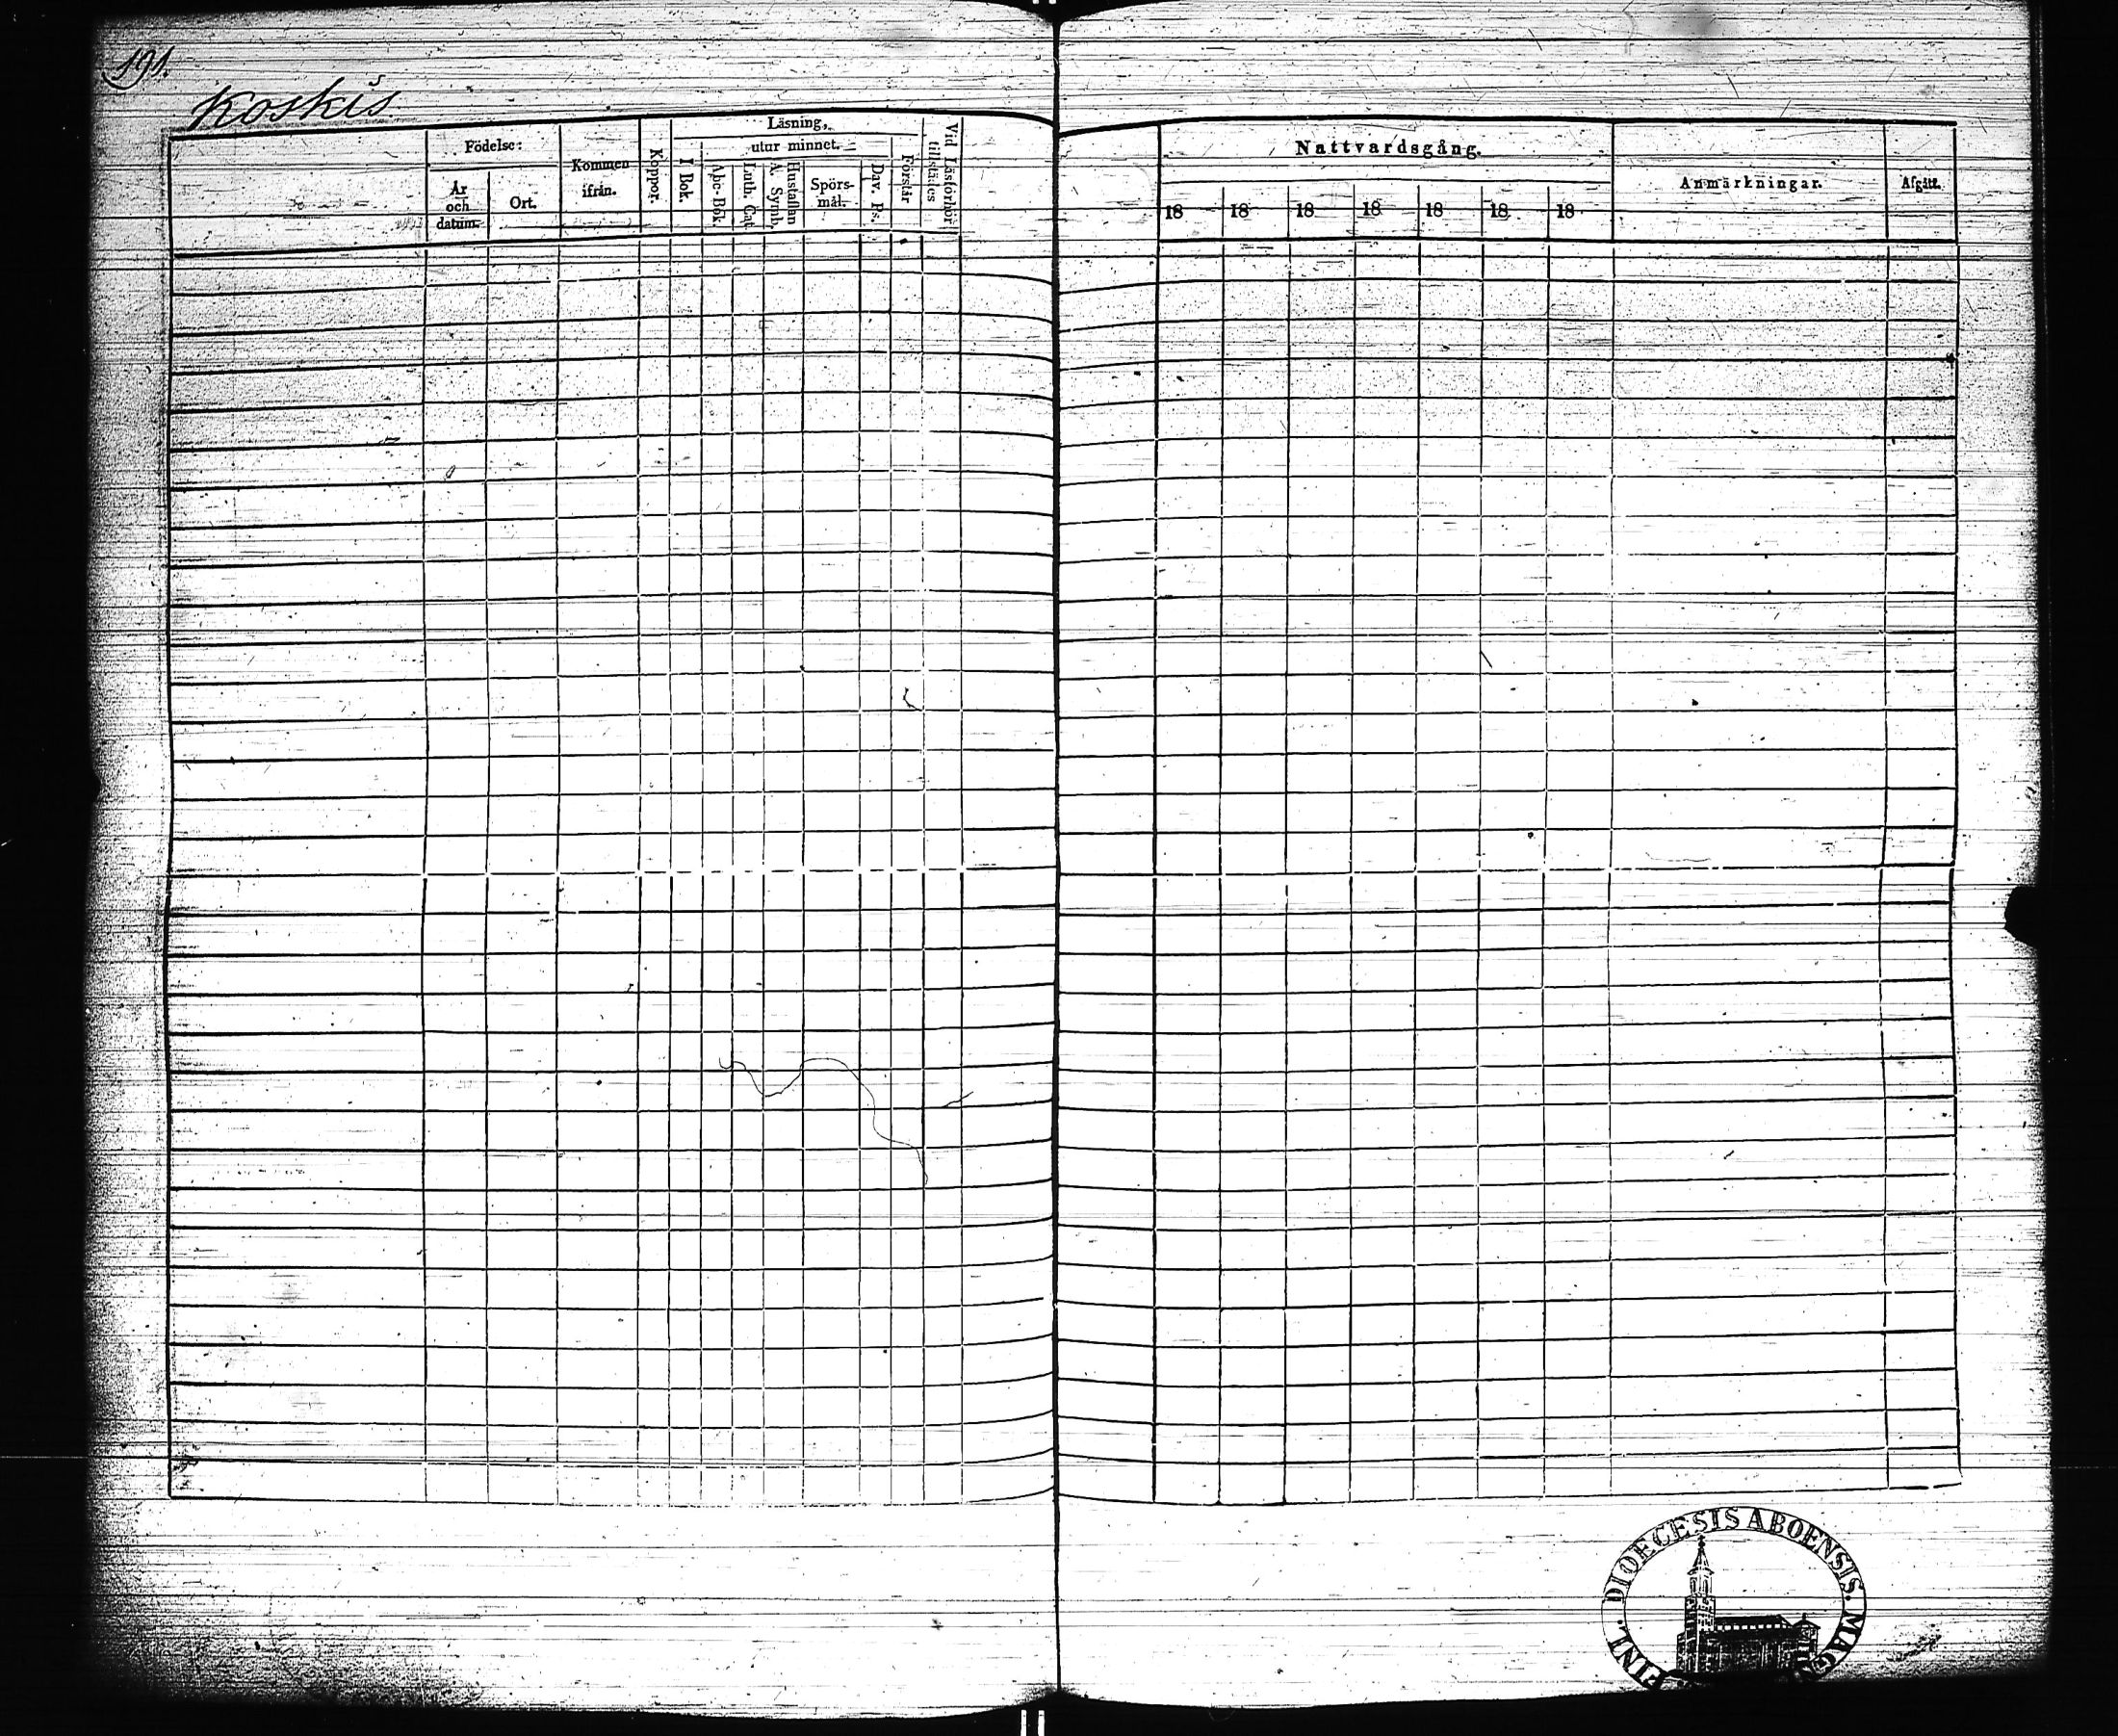 191.
Koskis
Födelse:
År
och
datum.
Ort.
Kommen
ifrån.
Koppor.
Läsning,
utur minnet.
I Bok.
Abc-Bok.
Luth. Cat.
Hustaflan
A. Symb.
Spörs-
mål.
Dav. Ps.
Förstår
Vid Läsförhör
tillstädes
Nattvardsgång.
18 18 18 18 18 18 18
Anmärkningar.
Afgått.
FINL. DIOECESIS ABOENSIS. MAG